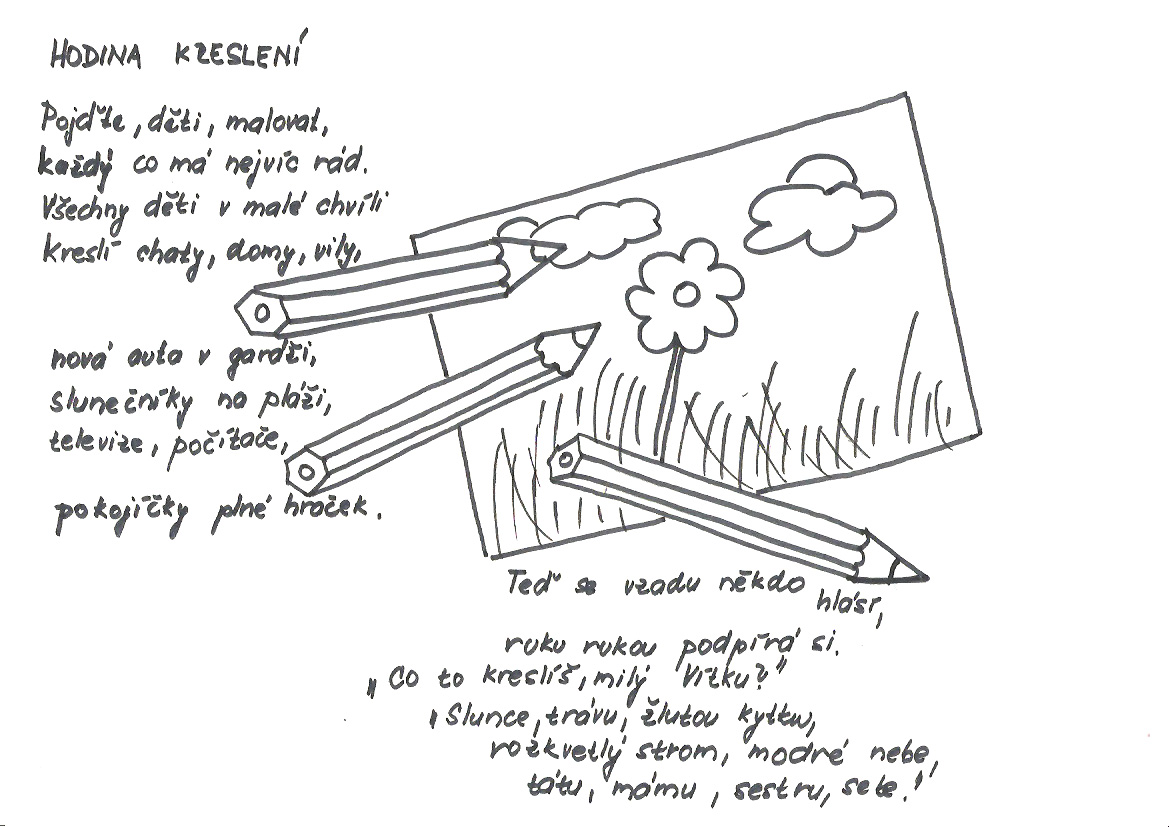 HODINA KRESLENÍ
Pojďte, děti, malovat,
každý co má nejvíc rád.
Všechny děti v malé chvíli
kreslí chaty, domy, vily,
nová auta v garáži,
slunečníky na pláži,
televize, počítače,
pokojíčky plné hraček.
Teď se vzadu někdo
hlásí,
ruku rukou podpírá si.
„Co to kreslíš, milý Vítku?"
„Slunce, trávu, žlutou kytku,
rozkvetlý strom, modré nebe,
tátu, mámu, sestru, sebe."